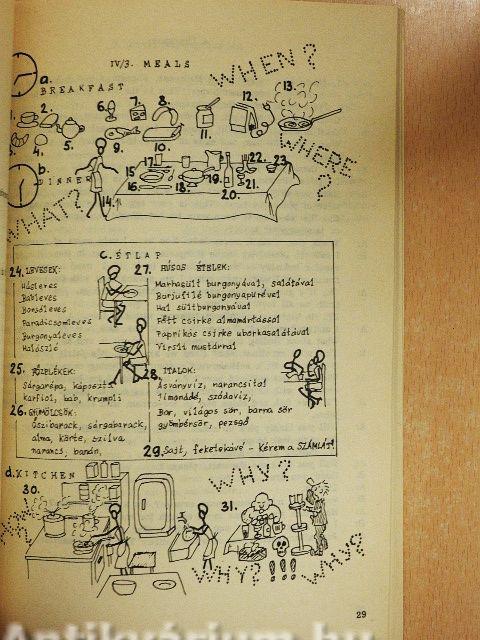 IV/3. MEALS
WHEN?
a.
BREAKFAST
1. 2. 6. 7. 8. 12. 13.
5. 9. 10. 11.
3. 4.
WHERE
?
b.
DINNER
14. 15 16. 17 18. 19. 20. 21. 22. 23.
WHAT?
C. ÉTLAP
24. LEVESEK:
Húsleves
Bableves
Borsóleves
Paradicsomleves
Burgonyaleves
Halászlé
27. HÚSOS ÉTELEK:
Marhasült burgonyával, salátával
Borjufilé burgonyapürével
Hal sültburgonyával
Főtt csirke almamártással
Paprikás csirke uborkasalátával
Virsli mustárral
25. FŐZELÉKEK:
Sárgarépa, káposzta,
karfiol, bab, krumpli
28. ITALOK:
Ásványvíz, narancsital
limonádé, szódavíz,
Bor, világos sör, barna sör
gyömbérsör, pezsgő
26. GYÜMÖLCSÖK:
Őszibarack, sárgabarack,
alma, körte, szilva
narancs, banán,
29. Sajt, feketekávé - Kérem a SZÁMLÁT!
d. KITCHEN
WHY?
30.
31.
WHY?
WHY?
!!!
29
Antikvárium.hu